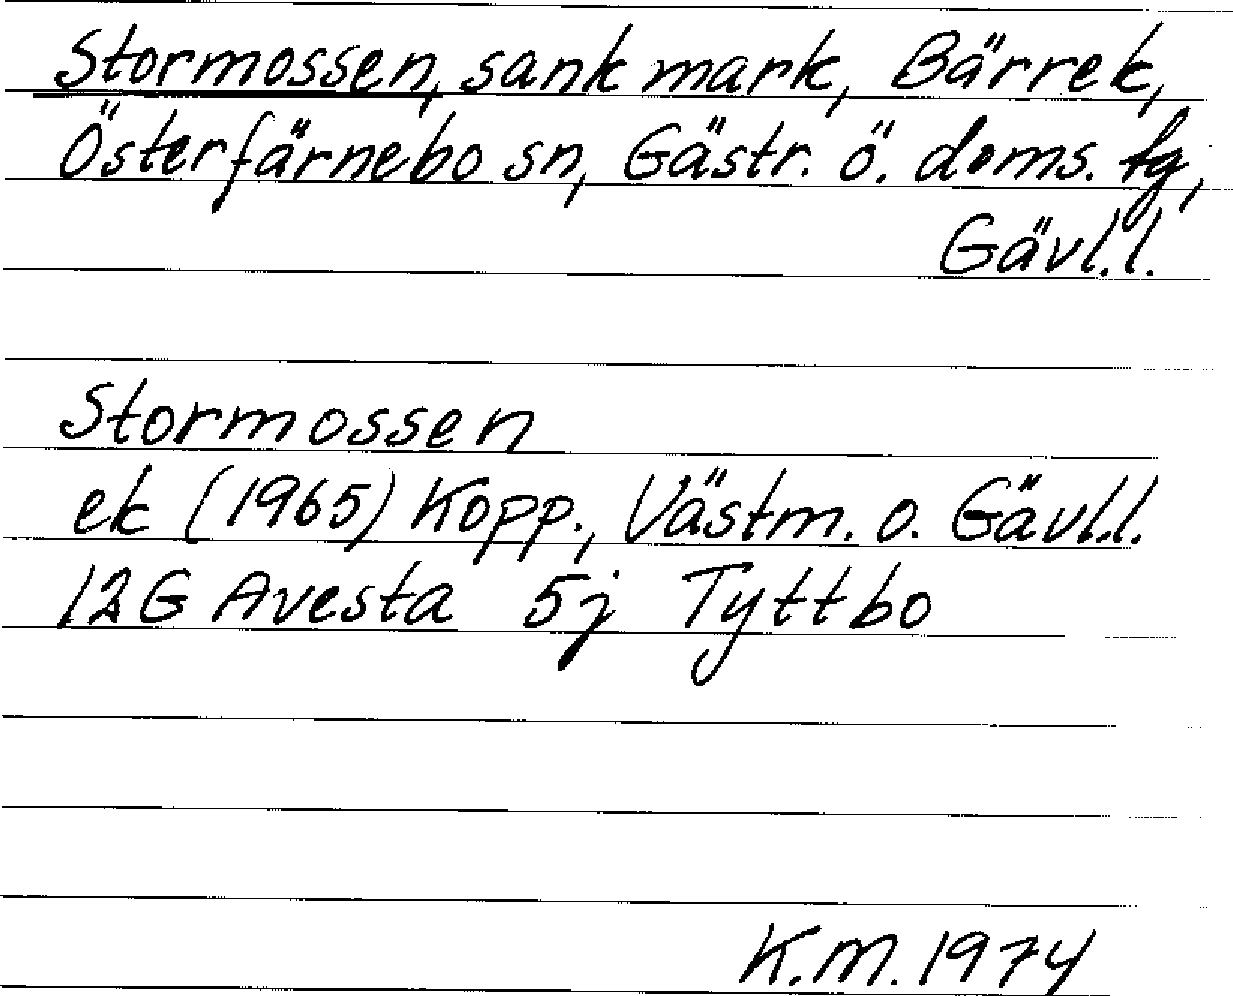 Stormossen, sank mark, Bärrek,
Österfärnebo sn, Gästr. ö. doms. tg,
Gävl.l.
Stormossen
ek (1965) Kopp., Västm. o. Gävl.l.
12G Avesta 5j Tyttbo
K.M. 1974